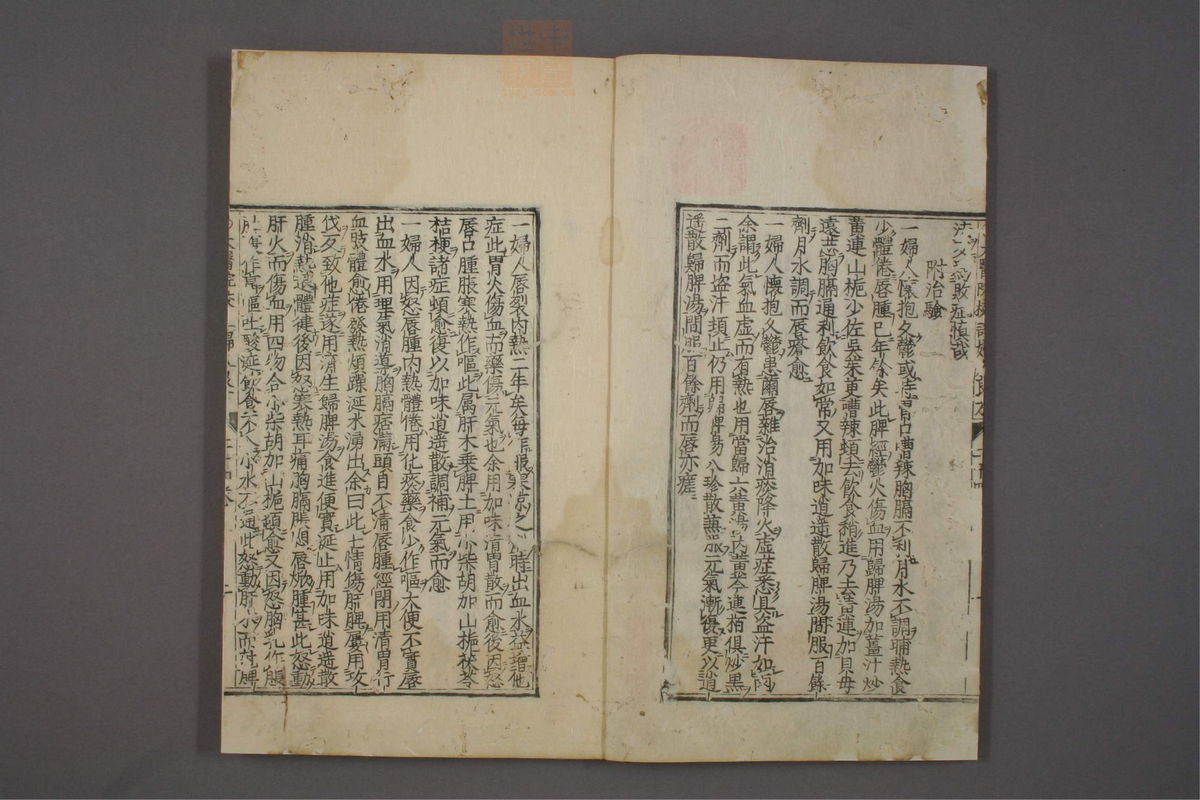 附治驗
一婦人懷抱久鬱或時胃口嘈辣胸膈不利月水不調晡熱食
少體倦唇腫已年餘矣此脾經鬱火傷血用歸脾湯加薑汁炒
黃連山梔少佐吳茱萸嘈辣頓去飲食稍進乃去黃連加貝母
遠志胸膈通利飲食如常又用加味逍遥散歸脾湯間服百餘
劑月水調而唇瘡愈
一婦人懷抱久鬱患繭唇雜治消痰降火虛症悉具盗汗如雨
余謂此氣血虛而有熱也用當歸六黃湯內黃芩連栢俱炒黑
二劑而盗汗頓止仍用歸脾湯八珍散兼服元氣漸復更以逍
遥散歸脾湯間服百餘劑而唇亦瘥
一婦人唇裂內熱二年矣每 出血水益增他
症此胃火傷血而藥傷元氣也余用加味清胃散而愈後因怒
唇口腫脹寒熱作嘔此属肝木乗脾土用小柴胡加山梔茯苓
桔梗諸症頓愈復以加味逍遥散調補元氣而愈
婦人因怒唇腫內熱體倦用化痰藥食少作嘔大便不實唇
出血水用理氣消導胸膈痞滿頭目不清唇腫經閉用清胃行
血肢體愈倦發熱煩躁涎水湧出余曰此七情傷肝脾屢用攻
伐久致他症遂用濟生歸脾湯食進便實涎止用加味逍遥散
腫消熱退體健後因怒寒熱耳痛胸膈脹悶唇焮腫甚此怒動
肝火而傷血用四物合小柴胡加山梔頓愈又因怒胸乳作脹
作 嘔吐酸涎飲食不入小水不通此怒動肝火而 脾